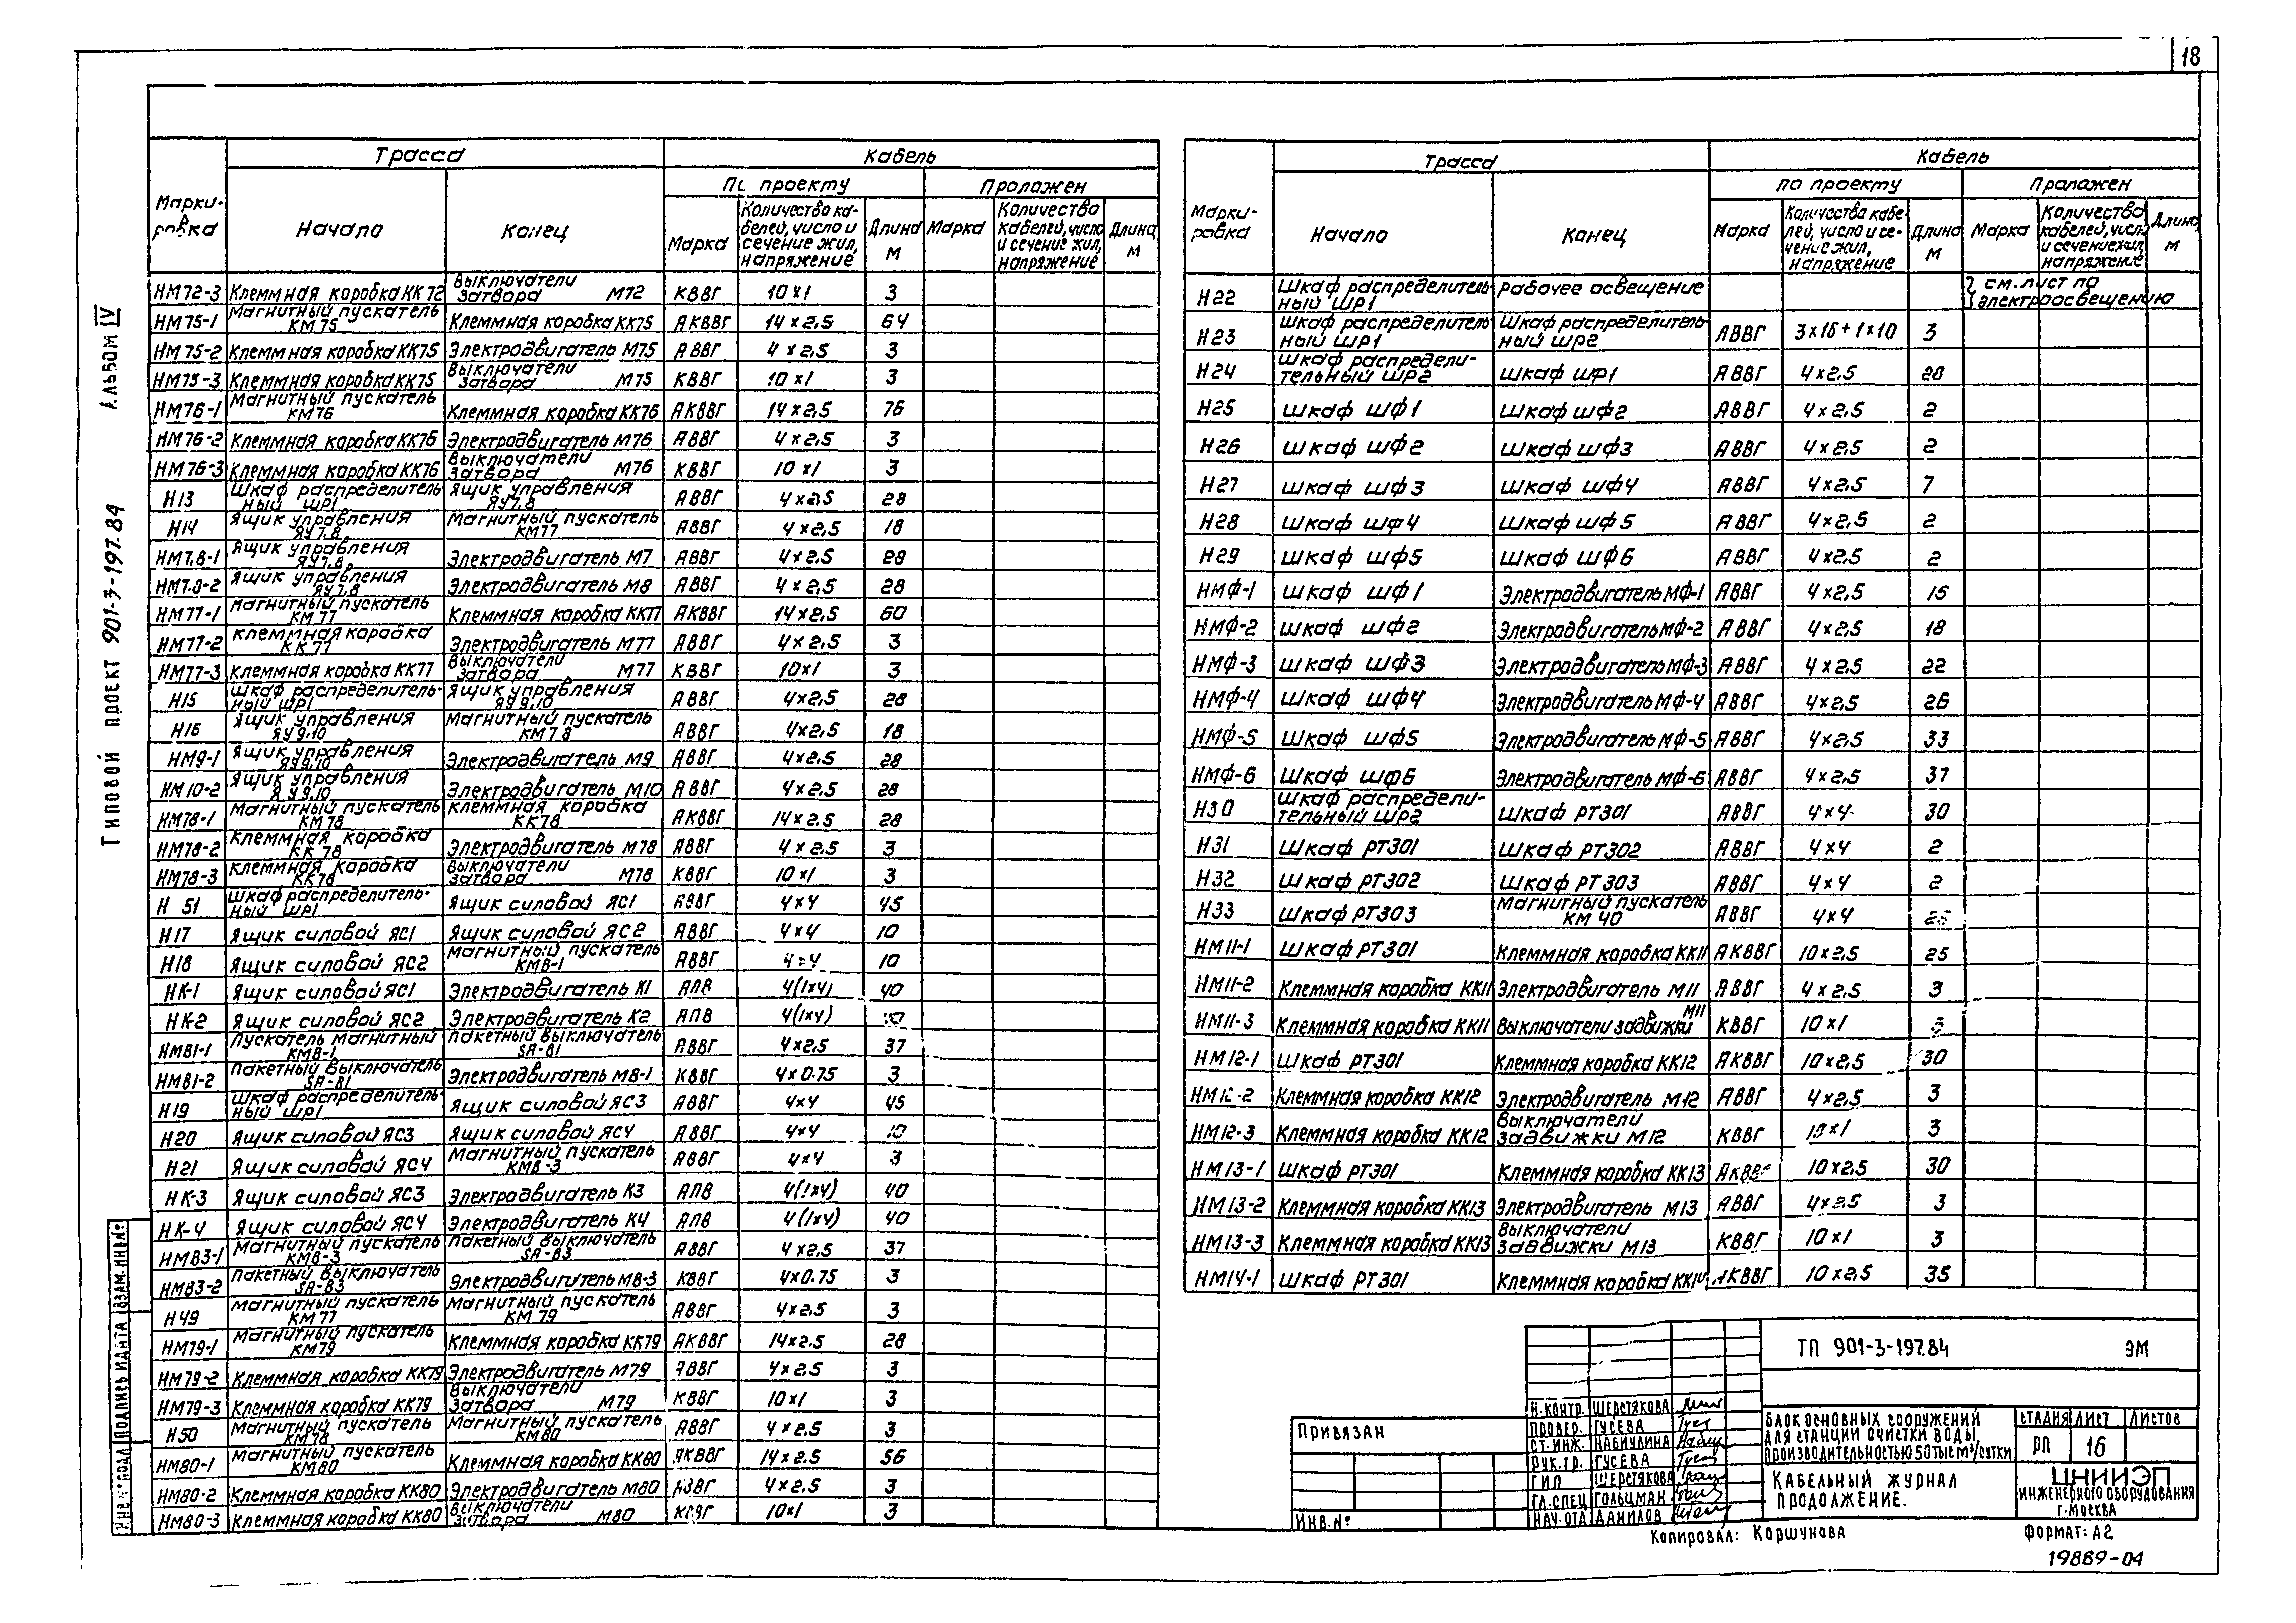 18
Альбом IV
Типовой проект 901-3-197.84
Марки-ровка | Трасса | Кабель
Начало | Конец | По проекту | Проложен
Марка | Количество ка-белей, число и сечение жил, напряжение | Длина м | Марка | Количество кабелей, число и сечение жил, напряжение | Длина м
НМ72-3 Клеммная коробка КК72 Выключатели затвора М72 КВВГ 10×1 3
НМ75-1 Магнитный пускатель КМ75 Клеммная коробка КК75 АКВВГ 14×2,5 64
НМ75-2 Клеммная коробка КК75 Электродвигатель М75 АВВГ 4×2,5 3
НМ75-3 Клеммная коробка КК75 Выключатели затвора М75 КВВГ 10×1 3
НМ76-1 Магнитный пускатель КМ76 Клеммная коробка КК76 АКВВГ 14×2,5 76
НМ76-2 Клеммная коробка КК76 Электродвигатель М76 АВВГ 4×2,5 3
НМ76-3 Клеммная коробка КК76 Выключатели затвора М76 КВВГ 10×1 3
Н13 Шкаф распределитель ный ШР1 Ящик управления ЯУ7,8 АВВГ 4×2,5 28
Н14 Ящик управления ЯУ7.8 Магнитный пускатель КМ77 АВВГ 4×2,5 18
НМ7,8-1 Ящик управления ЯУ7.8 Электродвигатель М7 АВВГ 4×2.5 28
НМ7.8-2 Ящик управления ЯУ7,8 Электродвигатель М8 АВВГ 4×2,5 28
НМ77-1 Магнитный пускатель КМ77 Клеммная коробка КК77 АКВВГ 14×2,5 60
НМ77-2 Клеммная коробка КК77 Электродвигатель М77 АВВГ 4×2,5 3
НМ77-3 Клеммная коробка КК77 Выключатели затвора М77 КВВГ 10×1 3
Н15 Шкаф распределитель-ный ШР1 Ящик управления ЯУ9,10 АВВГ 4×2,5 28
Н16 Ящик управления ЯУ9,10 Магнитный пускатель КМ7.8 АВВГ 4×2,5 18
НМ9-1 Ящик управления ЯУ9,10 Электродвигатель М9 АВВГ 4×2,5 28
НМ10-2 Ящик управления ЯУ9,10 Электродвигатель М10 АВВГ 4×2,5 28
НМ78-1 Магнитный пускатель КМ78 Клеммная коробка КК78 АКВВГ 14×2,5 28
НМ78-2 Клеммная коробка КК78 Электродвигатель М78 АВВГ 4×2.5 3
НМ78-3 Клеммная коробка КК78 Выключатели затвора М78 КВВГ 10×1 3
Н 51 Шкаф распределитель-ный ШР1 Ящик силовой ЯС1 АВВГ 4×4 45
Н17 Ящик силовой ЯС1 Ящик силовой ЯС2 АВВГ 4×4 10
Н18 Ящик силовой ЯС2 Магнитный пускатель КМ8-1 АВВГ 4×4 10
НК-1 Ящик силовой ЯС1 Электродвигатель К1 АПВ 4(1×4) 40
НК-2 Ящик силовой ЯС2 Электродвигатель К2 АПВ 4(1×4)
НМ81-1 Пускатель магнитный КМ8-1 Пакетный выключатель SA-81 АВВГ 4×2.5 37
НМ81-2 Пакетный выключатель SA-81 Электродвигатель М8-1 КВВГ 4×0.75 3
Н19 Шкаф распределитель-ный ШР1 Ящик силовой ЯС3 АВВГ 4×4 45
Н20 Ящик силовой ЯС3 Ящик силовой ЯС4 АВВГ 4×4 10
Н21 Ящик силовой ЯС4 Магнитный пускатель КМ8-3 АВВГ 4×4 3
НК-3 Ящик силовой ЯС3 Электродвигатель К3 АПВ 4(1×4) 40
НК-4 Ящик силовой ЯС4 Электродвигатель К4 АПВ 4(1×4) 40
НМ83-1 Магнитный пускатель КМ8-3 Пакетный выключатель SA-83 АВВГ 4×2.5 37
НМ83-2 Пакетный выключатель SA-83 Электродвигатель М8-3 КВВГ 4×0.75 3
Н49 Магнитный пускатель КМ77 Магнитный пускатель КМ79 АВВГ 4×2.5 3
НМ79-1 Магнитный пускатель КМ79 Клеммная коробка КК79 АКВВГ 14×2.5 28
НМ79-2 Клеммная коробка КК79 Электродвигатель М79 АВВГ 4×2.5 3
НМ79-3 Клеммная коробка КК79 Выключатели затвора М79 КВВГ 10×1 3
Н50 Магнитный пускатель КМ78 Магнитный пускатель КМ80 АВВГ 4×2.5 3
НМ80-1 Магнитный пускатель КМ80 Клеммная коробка КК80 АКВВГ 14×2.5 56
НМ80-2 Клеммная коробка КК80 Электродвигатель М80 АВВГ 4×2.5 3
НМ80-3 Клеммная коробка КК80 Выключатели затвора М80 КВВГ 10×1 3
Марки-ровка | Трасса | Кабель
Начало | Конец | По проекту | Проложен
Марка | Количество кабе-лей, число и се-чение жил, напряжение | Длина м | Марка | Количество кабелей, число и сечение жил, напряжение | Длина м
Н22 Шкаф распределитель ный ШР1 Рабочее освещение см. лист по электроосвещению
Н23 Шкаф распределитель ный ШР1 Шкаф распределитель-ный ШР2 АВВГ 3×16+1×10 3
Н24 Шкаф распредели-тельный ШР2 Шкаф ШР1 АВВГ 4×2,5 28
Н25 Шкаф ШФ1 Шкаф ШФ2 АВВГ 4×2.5 2
Н26 Шкаф ШФ2 Шкаф ШФ3 АВВГ 4×2,5 2
Н27 Шкаф ШФ3 Шкаф ШФ4 АВВГ 4×2,5 7
Н28 Шкаф ШФ4 Шкаф ШФ5 АВВГ 4×2,5 2
Н29 Шкаф ШФ5 Шкаф ШФ6 АВВГ 4×2,5 2
НМФ-1 Шкаф ШФ1 Электродвигатель МФ-1 АВВГ 4×2,5 15
НМФ-2 Шкаф ШФ2 Электродвигатель МФ-2 АВВГ 4×2,5 18
НМФ-3 Шкаф ШФ3 Электродвигатель МФ-3 АВВГ 4×2,5 22
НМФ-4 Шкаф ШФ4 Электродвигатель МФ-4 АВВГ 4×2,5 26
НМФ-5 Шкаф ШФ5 Электродвигатель МФ-5 АВВГ 4×2,5 33
НМФ-6 Шкаф ШФ6 Электродвигатель МФ-6 АВВГ 4×2,5 37
Н30 Шкаф распредели-тельный ШР2 Шкаф РТ301 АВВГ 4×4 30
Н31 Шкаф РТ301 Шкаф РТ302 АВВГ 4×4 2
Н32 Шкаф РТ302 Шкаф РТ303 АВВГ 4×4 2
Н33 Шкаф РТ303 Магнитный пускатель КМ 40 АВВГ 4×4
НМ11-1 Шкаф РТ301 Клеммная коробка КК11 АКВВГ 10×2,5 25
НМ11-2 Клеммная коробка КК11 Электродвигатель М11 АВВГ 4×2,5 3
НМ11-3 Клеммная коробка КК11 Выключатели задвижки М11 КВВГ 10×1 3
НМ12-1 Шкаф РТ301 Клеммная коробка КК12 АКВВГ 10×2,5 30
НМ12-2 Клеммная коробка КК12 Электродвигатель М12 АВВГ 4×2,5 3
НМ12-3 Клеммная коробка КК12 Выключатели задвижки М12 КВВГ 10×1 3
НМ13-1 Шкаф РТ301 Клеммная коробка КК13 АКВВГ 10×2,5 30
НМ13-2 Клеммная коробка КК13 Электродвигатель М13 АВВГ 4×2,5 3
НМ13-3 Клеммная коробка КК13 Выключатели задвижки М13 КВВГ 10×1 3
НМ14-1 Шкаф РТ301 Клеммная коробка КК14 АКВВГ 10×2,5 35
Инв.№ подл. Подпись и дата Взам. инв.№
Привязан
Инв.№
Н.контр. Шерстякова
Провер. Гусева
Ст.инж. Набиулина
Рук.гр. Гусева
ГИП Шерстякова
Гл.спец Гольцман
Нач.отд Данилов
ТП 901-3-197.84 ЭМ
Блок основных сооружений
для станции очистки воды
производительностью 50 тыс м³/сутки
Стадия Лист Листов
РП 16
Кабельный журнал
Продолжение.
ЦНИИЭП
инженерного оборудования
г. Москва
Копировал: Коршунова
Формат: А2
19889-04